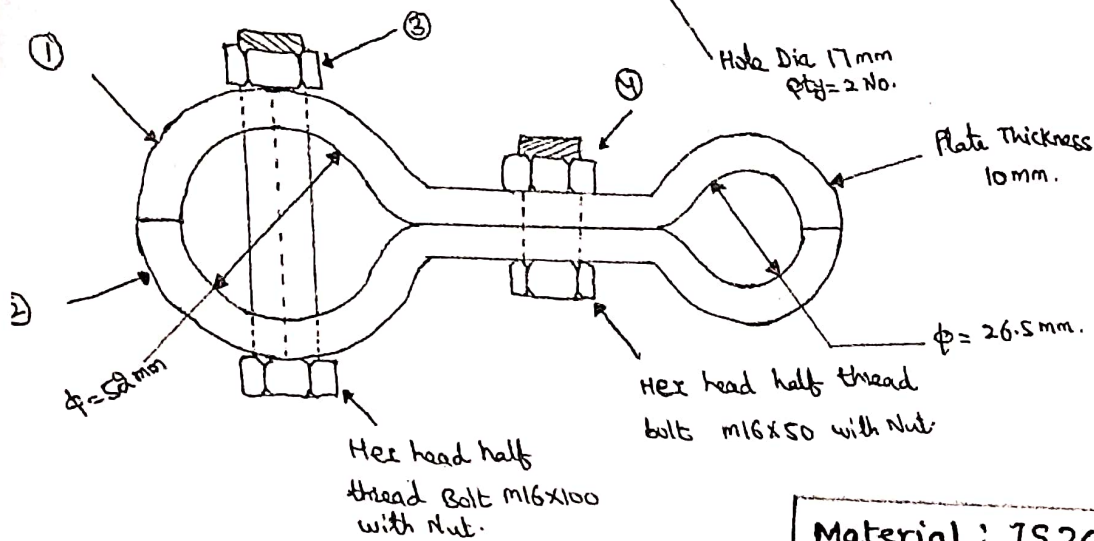 ①
③
Hole Dia 17mm
Qty=2 No.
④
Plate Thickness
10mm.
2
ф=52mm
ф= 26.5mm.
Hex head half thread
bolt M16X50 with Nut.
Hex head half
thread Bolt M16X100
with Nut.
Material : IS20